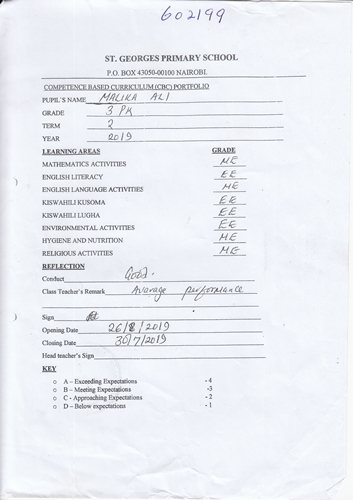 602199
ST. GEORGES PRIMARY SCHOOL
P.O. BOX 43050-00100 NAIROBI.
COMPETENCE BASED CURRICULUM (CBC) PORTFOLIO
PUPIL'S NAME MALIKA ALI
GRADE 3 PK
TERM 2
YEAR 2019
LEARNING AREAS GRADE
MATHEMATICS ACTIVITIES ME
ENGLISH LITERACY EE
ENGLISH LANGUAGE ACTIVITIES ME
KISWAHILI KUSOMA EE
KISWAHILI LUGHA EE
ENVIRONMENTAL ACTIVITIES EE
HYGIENE AND NUTRITION ME
RELIGIOUS ACTIVITIES ME
REFLECTION
Conduct Good.
Class Teacher's Remark Avarage performance
Sign
Opening Date 26/8/2019
Closing Date 30/7/2019
Head teacher's Sign
KEY
A – Exceeding Expectations - 4
B – Meeting Expectations -3
C - Approaching Expectations - 2
D – Below expectations - 1